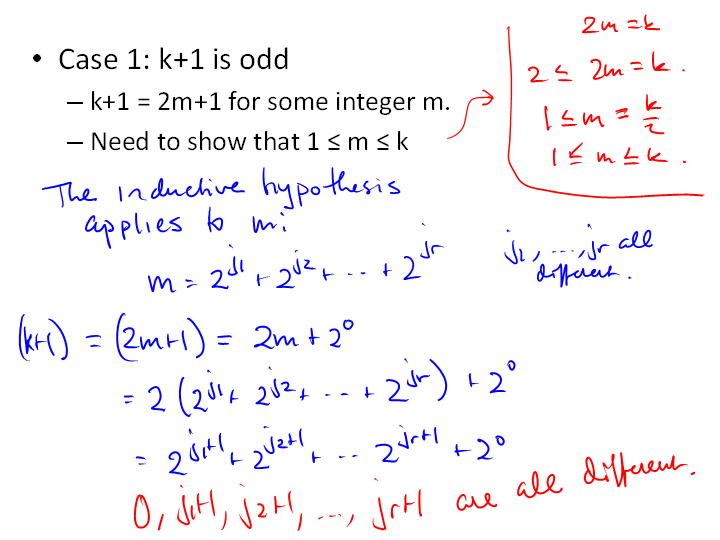 • Case 1: k+1 is odd
– k+1 = 2m+1 for some integer m.
– Need to show that 1 ≤ m ≤ k
2m = k
2 ≤ 2m = k.
1 ≤ m = k/2
1 ≤ m ≤ k.
The inductive hypothesis
applies to m:
m = 2^j1 + 2^j2 + ... + 2^jr
j1, ..., jr all
different.
(k+1) = (2m+1) = 2m + 2^0
= 2 (2^j1 + 2^j2 + ... + 2^jr) + 2^0
= 2^j1+1 + 2^j2+1 + ... 2^jr+1 + 2^0
0, j1+1, j2+1, ..., jr+1 are all different.